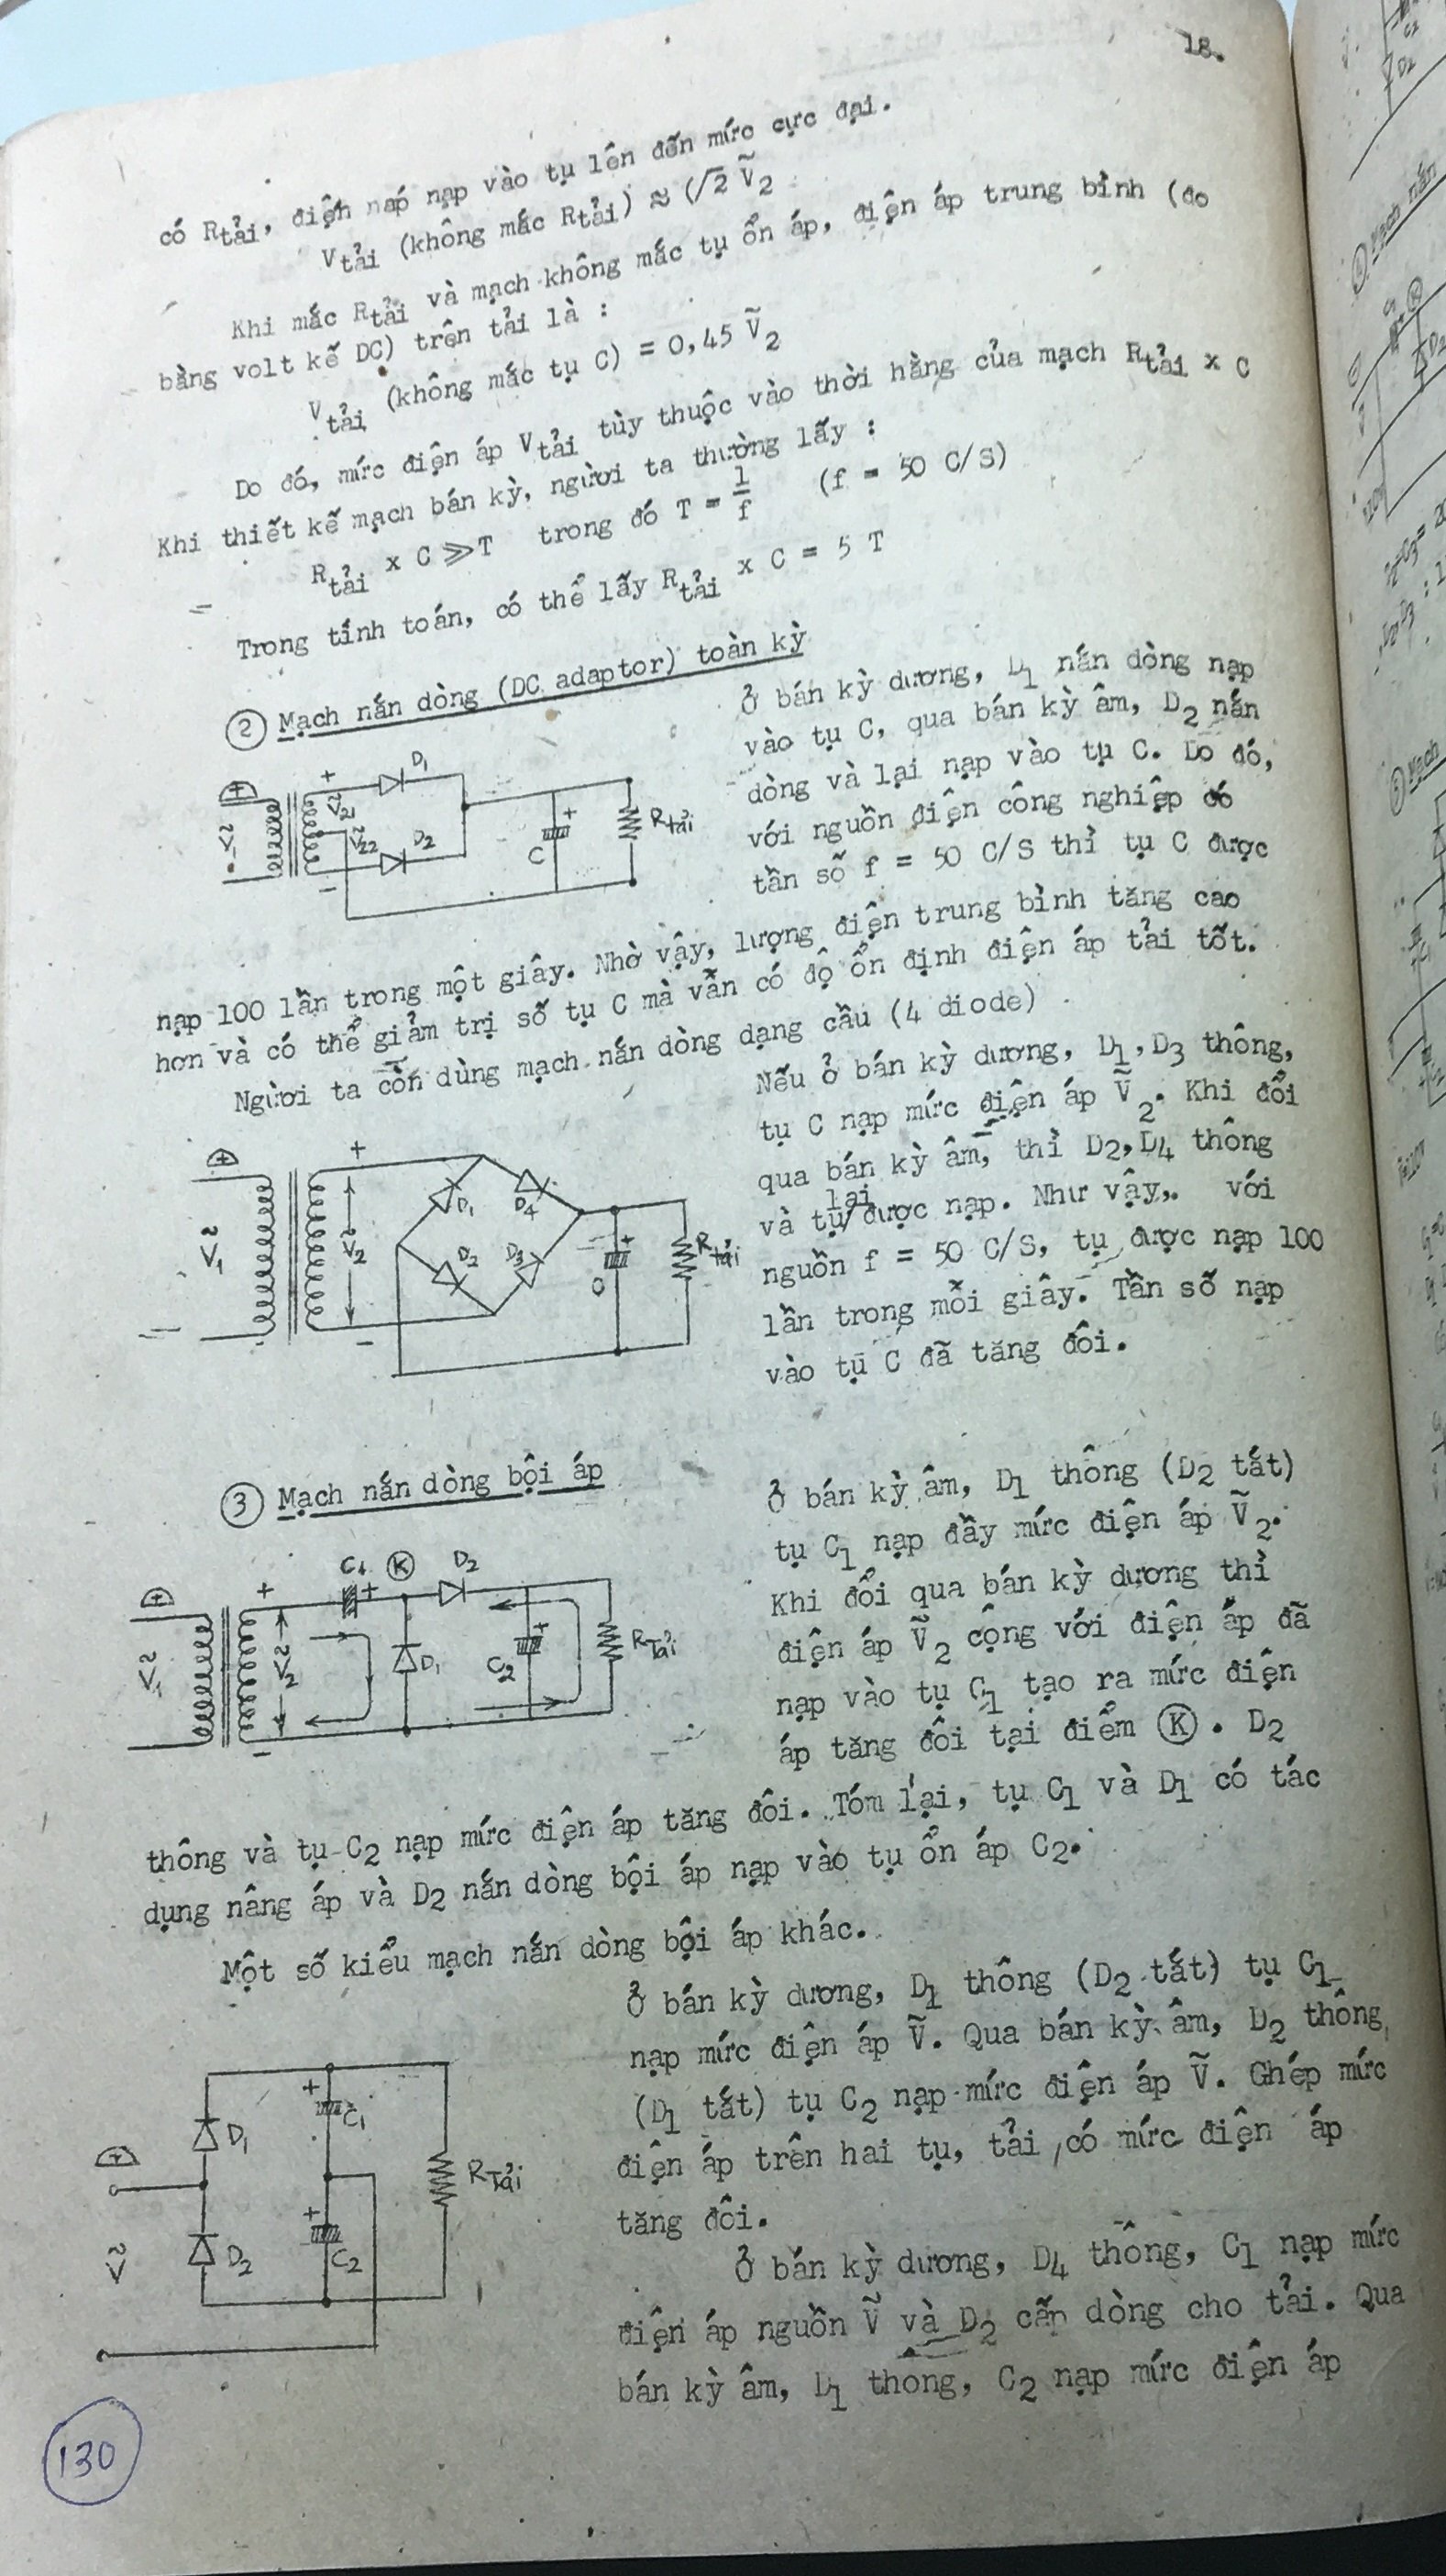 18.
có Rtải, điện náp nạp vào tụ lên đến mức cực đại.
Vtải (không mắc Rtải) ≈ (√2 Ṽ2
Khi mắc Rtải và mạch không mắc tụ ổn áp, điện áp trung bình (đo
bằng volt kế DC) trên tải là :
Vtải (không mắc tụ C) = 0,45 Ṽ2
Do đó, mức điện áp Vtải tùy thuộc vào thời hằng của mạch Rtải x C
Khi thiết kế mạch bán kỳ, người ta thường lấy :
Rtải x C ≫ T trong đó T = 1/f (f = 50 C/S)
Trong tính toán, có thể lấy Rtải x C = 5 T
2 Mạch nắn dòng (DC adaptor) toàn kỳ
Ở bán kỳ dương, D1 nắn dòng nạp
vào tụ C, qua bán kỳ âm, D2 nắn
dòng và lại nạp vào tụ C. Do đó,
với nguồn điện công nghiệp có
tần số f = 50 C/S thì tụ C được
+ Ṽ1 + Ṽ21 Ṽ22 - D1 D2 C + Rtải
nạp 100 lần trong một giây. Nhờ vậy, lượng điện trung bình tăng cao
hơn và có thể giảm trị số tụ C mà vẫn có độ ổn định điện áp tải tốt.
Người ta còn dùng mạch nắn dòng dạng cầu (4 diode)
Nếu ở bán kỳ dương, D1, D3 thông,
tụ C nạp mức điện áp Ṽ2. Khi đổi
qua bán kỳ âm, thì D2, D4 thông
và tụ/lại được nạp. Như vậy, với
nguồn f = 50 C/S, tụ được nạp 100
lần trong mỗi giây. Tần số nạp
vào tụ C đã tăng đôi.
+ Ṽ1 + Ṽ2 - D1 D4 D2 D3 C + Rtải
3 Mạch nắn dòng bội áp
Ở bán kỳ âm, D1 thông (D2 tắt)
tụ C1 nạp đầy mức điện áp Ṽ2.
Khi đổi qua bán kỳ dương thì
điện áp Ṽ2 cộng với điện áp đã
nạp vào tụ C1 tạo ra mức điện
áp tăng đôi tại điểm K . D2
+ Ṽ1 + Ṽ2 - C1 + K D2 D1 C2 + RTải
thông và tụ C2 nạp mức điện áp tăng đôi. Tóm lại, tụ C1 và D1 có tác
dụng nâng áp và D2 nắn dòng bội áp nạp vào tụ ổn áp C2.
Một số kiểu mạch nắn dòng bội áp khác.
Ở bán kỳ dương, D1 thông (D2 tắt) tụ C1
nạp mức điện áp Ṽ. Qua bán kỳ âm, D2 thông
(D1 tắt) tụ C2 nạp mức điện áp Ṽ. Ghép mức
điện áp trên hai tụ, tải có mức điện áp
tăng đôi.
+ Ṽ D1 D2 + C1 + C2 RTải
Ở bán kỳ dương, D4 thông, C1 nạp mức
điện áp nguồn Ṽ và D2 cấp dòng cho tải. Qua
bán kỳ âm, D1 thông, C2 nạp mức điện áp
130